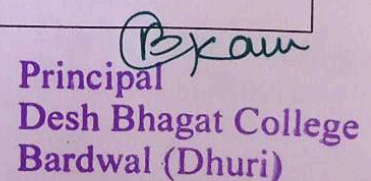 BKaur
Principal
Desh Bhagat College
Bardwal (Dhuri)